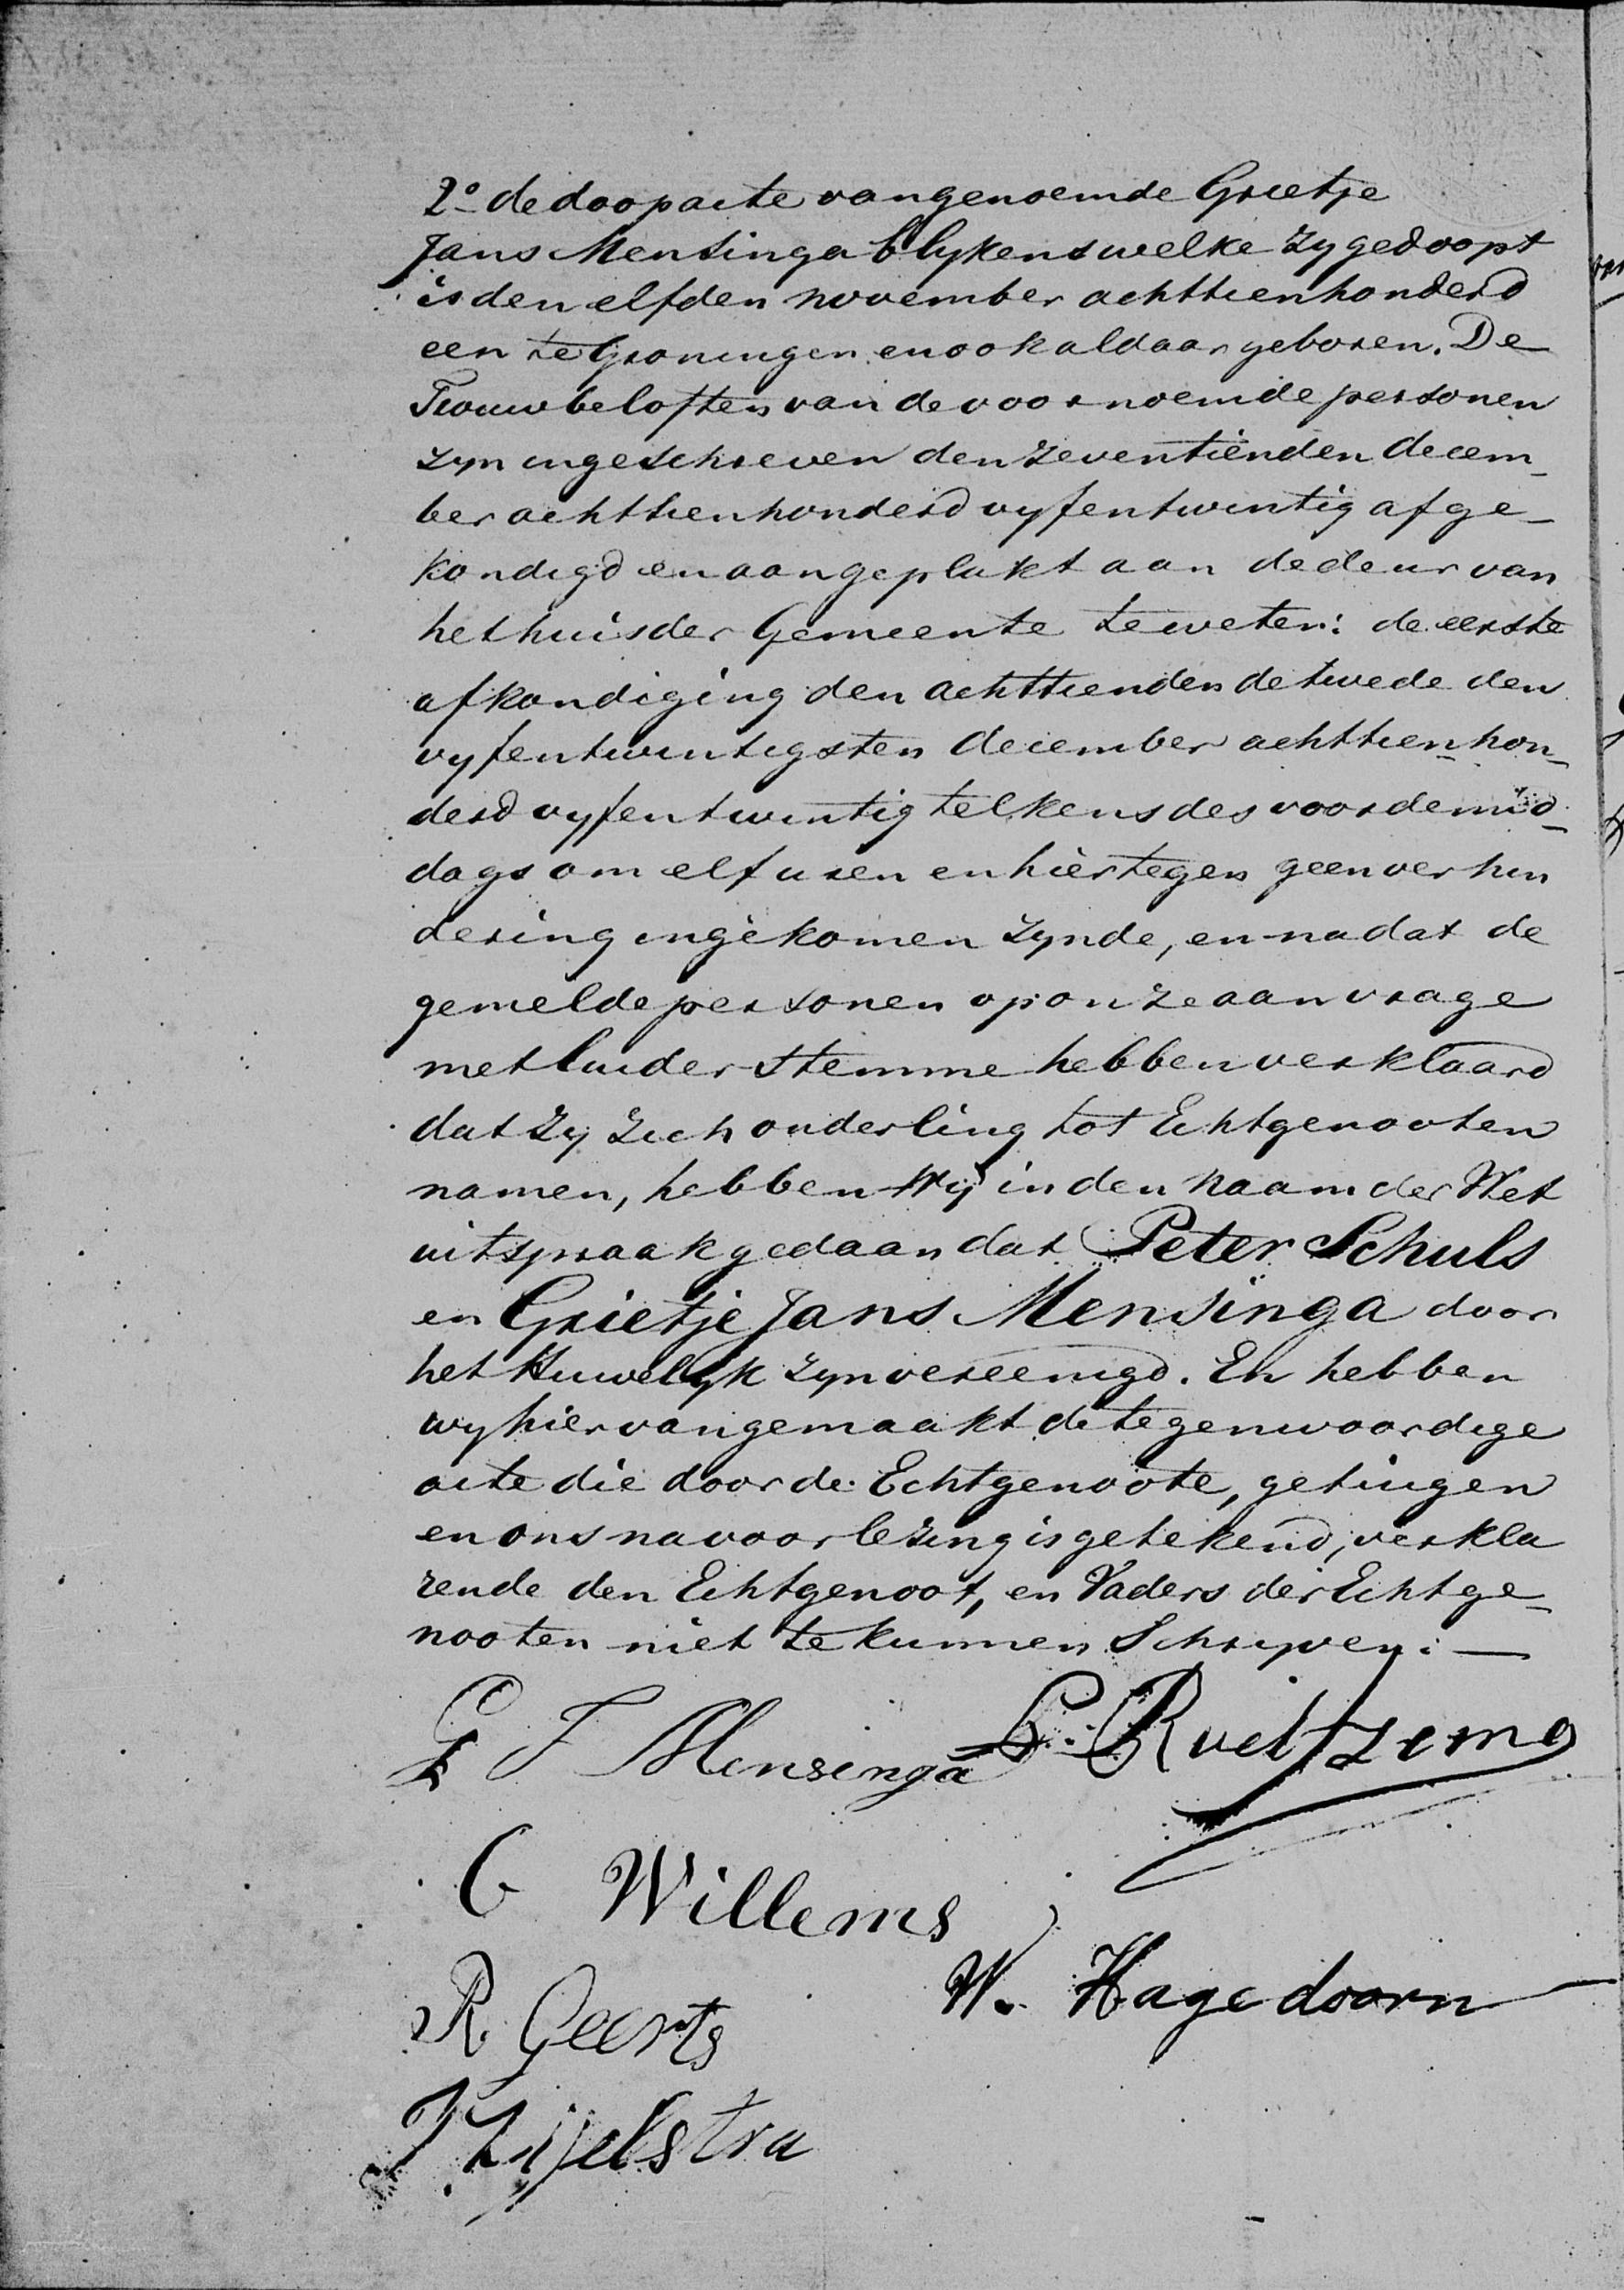 2º de doopacte van genoemde Grietje
Jans Mensinga blykens welke zy gedoopt
is den elfden november achttienhonderd
een te Groningen en ook aldaar geboren. De
Trouwbeloften van de voornoemde personen
zyn ingeschreven den zeventienden decem-
ber achttienhonderd vyfentwintig afge-
kondigd en aangeplakt aan de deur van
het huis der Gemeente te weten: de eerste
afkondiging den achttienden de twede den
vyfentwintigsten december achttien hon-
derd vyfentwintig telkens des voordemid-
dags om elf uren en hiertegen geen verhin
dering ingekomen zynde, en nadat de
gemelde personen op onze aanvrage
met luider stemme hebben verklaard
dat zy zich onderling tot Echtgenooten
namen, hebben Wij in den Naam der Wet
uitspraak gedaan dat Peter Schuls
en Grietje Jans Mensinga door
het Huwelyk zyn vereenigd. En hebben
wy hiervan gemaakt de tegenwoordige
acte die door de Echtgenoote, getuigen
en ons na voorlezing is getekend, verkla
rende den Echtgenoot, en Vaders der Echtge-
nooten niet te kunnen Schryven. —
G J Mensinga
C Willems
R. Geerts W. Hagedoorn